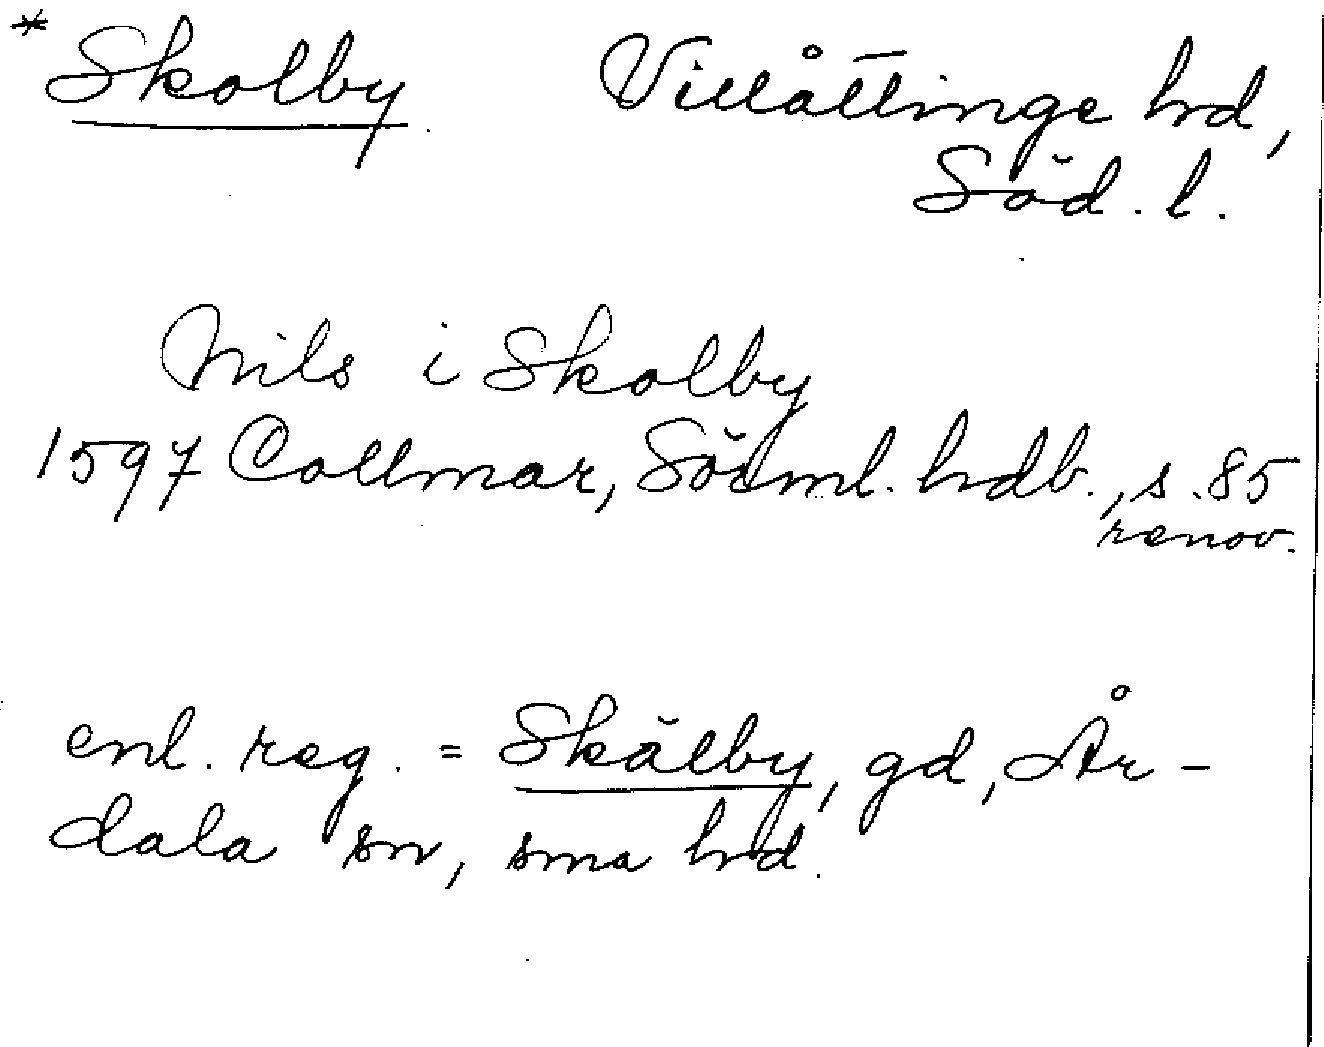 * Skolby Villåttinge hrd,
Söd. l.
Nils i Skolby
1597 Collmar, Sörml. hdb., s. 85
renov.
enl. reg. = Skälby, gd, År-
dala sn, sma hrd.